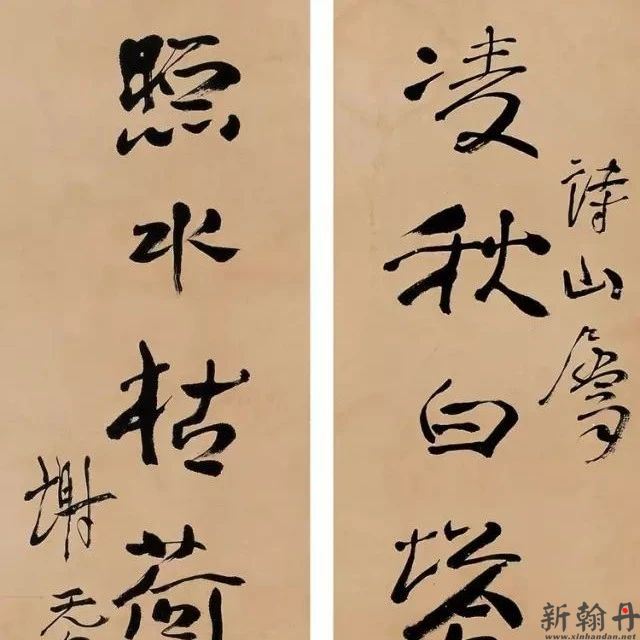 詩山屬
凌秋白塔
照水枯荷
謝无
新翰丹
www.xinhandan.net